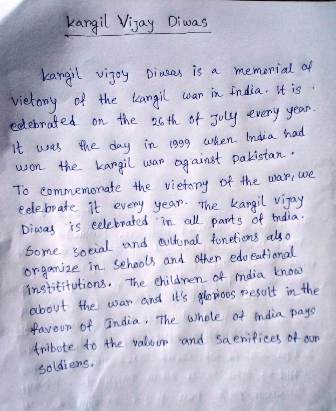 Kangil Vijay Diwas
kangil vijoy Diwas is a memonial of
vietony of the kangil wan in India. It is
eelebnated on the 26th of July eveny yean.
it was the day in 1999 when India had
won the kangil wan against pakistan.
To commemonate the vietony of the wan, we
eelebnate it eveny yean. The kangil vijay
Diwas is eelebnated in all pants of India.
Some soeial and cultunal funetions also
onganize in Sehools and othen edueational
instititutions. The ehildnen of India know
about the wan and it's glonious nesult in the
favoun of India. The whole of India pays
tnibute to the valoun and Saenifices of oun
soldiens.